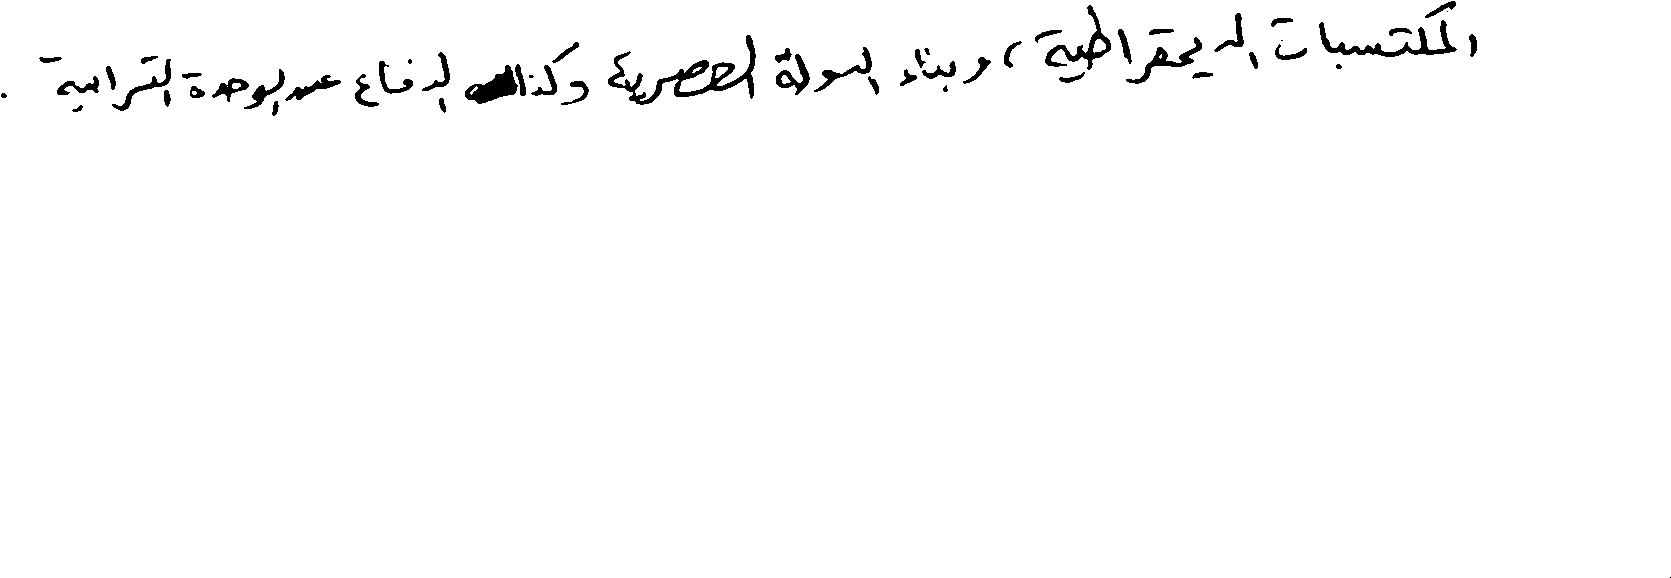 المكتسبات الديمقراطية، وبناء الدولة العصرية وكذلك الدفاع عن الوحدة الترابية .